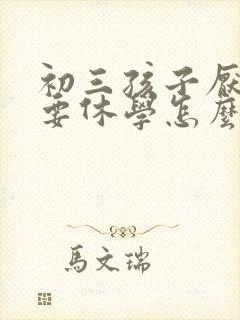 初三孩子厭
要休學怎麼
馬文瑞